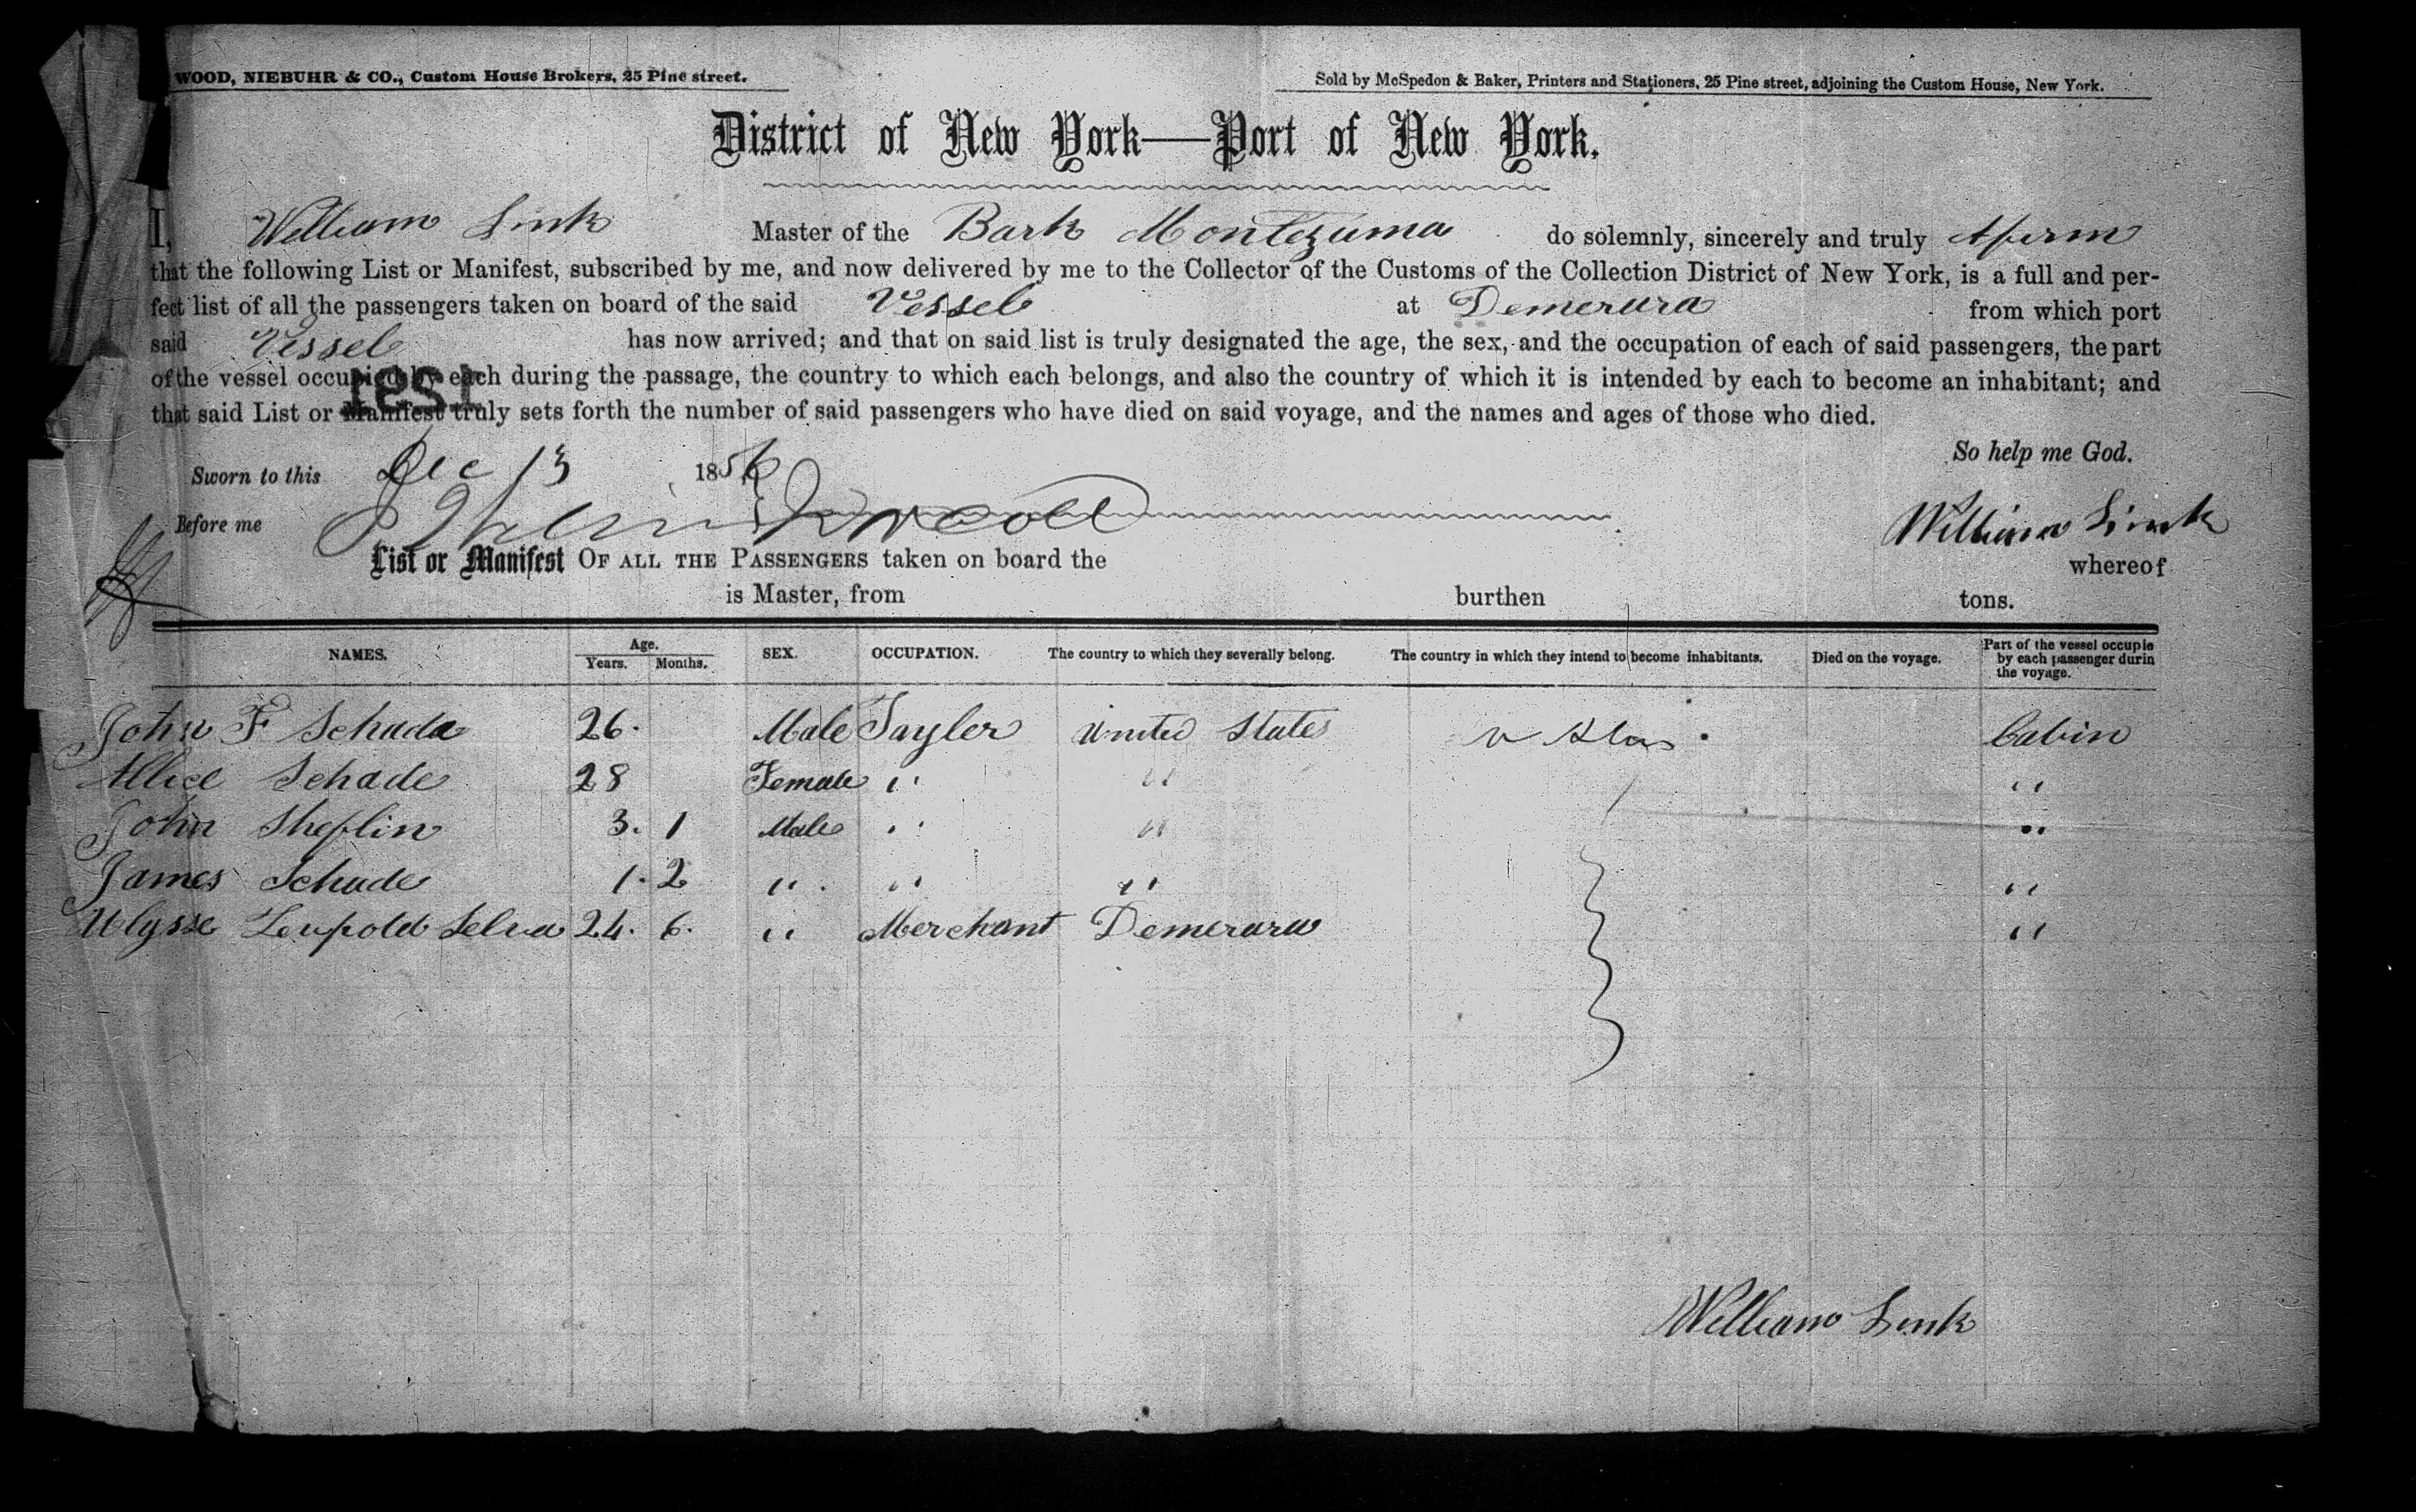 WOOD, NIEBUHR & CO., Custom House Brokers, 25 Pine street.
Sold by McSpedon & Baker, Printers and Stationers, 25 Pine street, adjoining the Custom House, New York.
District of New York—Port of New York.
I, William Link Master of the Bark Montezuma do solemnly, sincerely and truly Afirm
that the following List or Manifest, subscribed by me, and now delivered by me to the Collector of the Customs of the Collection District of New York, is a full and per-
fect list of all the passengers taken on board of the said Vessel at Demerara from which port
said Vessel has now arrived; and that on said list is truly designated the age, the sex, and the occupation of each of said passengers, the part
of the vessel occupied by each during the passage, the country to which each belongs, and also the country of which it is intended by each to become an inhabitant; and
1251
that said List or Manifest truly sets forth the number of said passengers who have died on said voyage, and the names and ages of those who died.
So help me God.
Sworn to this Dec 13 1856
Before me
William Link
List or Manifest OF ALL THE PASSENGERS taken on board the whereof
is Master, from burthen tons.
NAMES. Age. Years. Months. SEX. OCCUPATION. The country to which they severally belong. The country in which they intend to become inhabitants. Died on the voyage. Part of the vessel occupie by each passenger durin the voyage.
John F Schade 26. Male Tayler United States U Stas. Cabin
Allice Schade 28 Female " " "
John Sheplin 3. 1 Male " " "
James Schade 1. 2 " " " "
Ulysse Leupold Selva 24. 6. " Merchant Demerara "
William Link